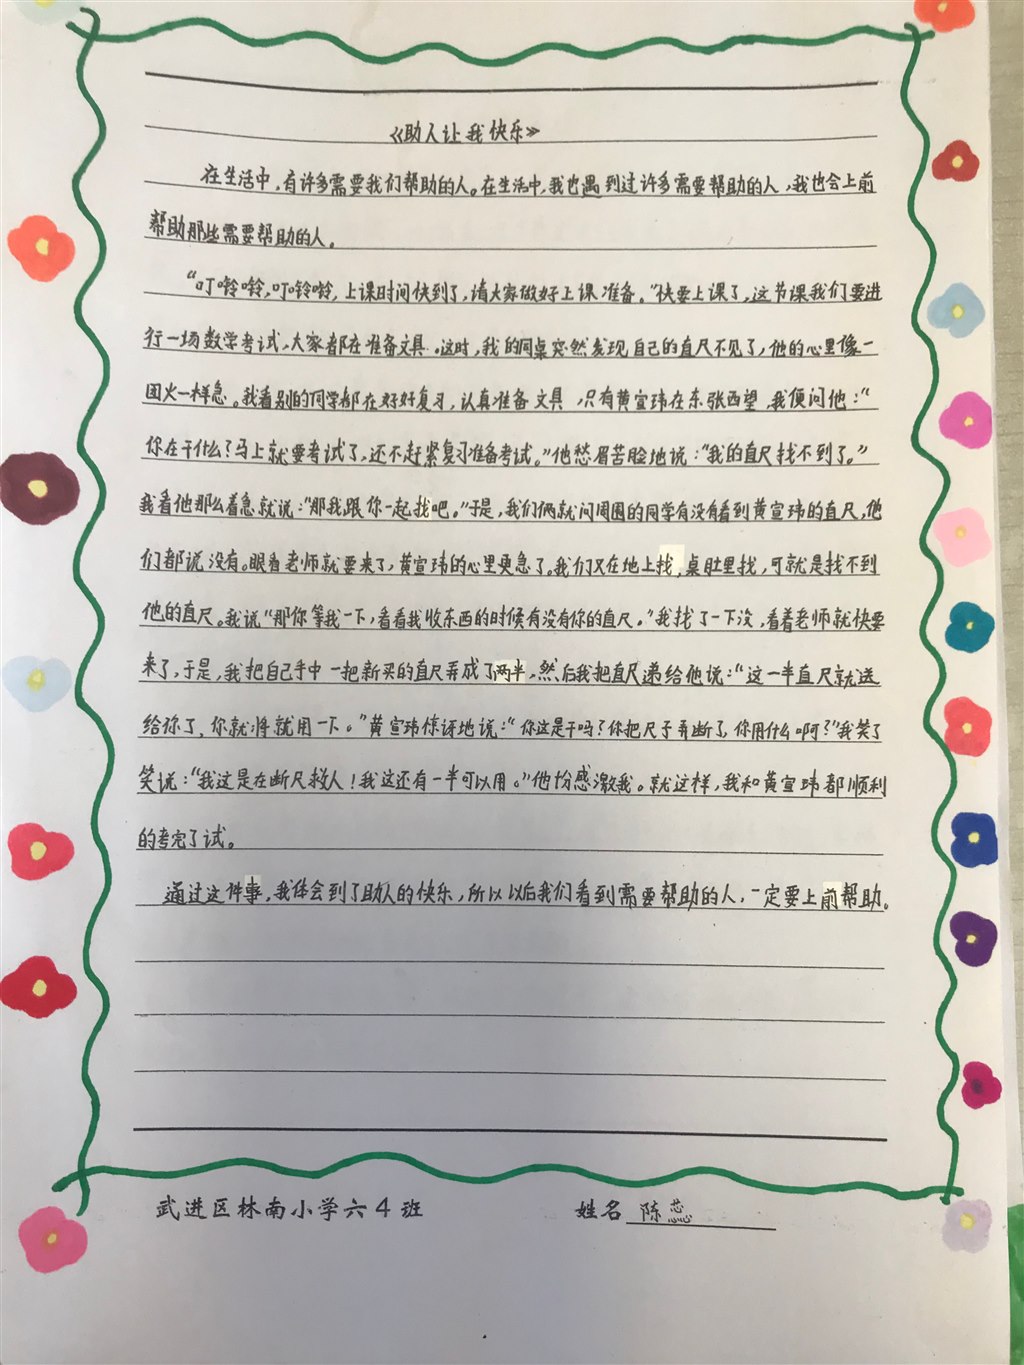 《助人让我快乐》
在生活中,有许多需要我们帮助的人。在生活中,我也遇到过许多需要帮助的人,我也会上前
帮助那些需要帮助的人。
“叮呤呤,叮铃呤,上课时间快到了,请大家做好上课准备。”快要上课了,这节课我们要进
行一场数学考试,大家都在准备文具。这时,我的同桌突然发现自己的直尺不见了,他的心里像一
团火一样急。我看别的同学都在好好复习,认真准备文具,只有黄宣玮在东张西望,我便问他:“
你在干什么?马上就要考试了,还不赶紧复习准备考试。”他愁眉苦脸地说:“我的直尺找不到了。”
我看他那么着急就说:“那我跟你一起找吧。”于是,我们俩就问周围的同学有没有看到黄宣玮的直尺,他
们都说没有。眼看老师就要来了,黄宣玮的心里更急了。我们又在地上找,桌肚里找,可就是找不到
他的直尺。我说“那你等我一下,看看我收东西的时候有没有你的直尺。”我找了一下没,看着老师就快要
来了,于是,我把自己手中一把新买的直尺弄成了两半,然后我把直尺递给他说:“这一半直尺就送
给你了,你就将就用一下。”黄宣玮惊讶地说:“你这是干吗?你把尺子弄断了,你用什么啊?”我笑了
笑说:“我这是在断尺救人!我这还有一半可以用。”他十分感激我。就这样,我和黄宣玮都顺利
的考完了试。
通过这件事,我体会到了助人的快乐,所以以后我们看到需要帮助的人,一定要上前帮助。
武进区林南小学六4班 姓名 陈蕊